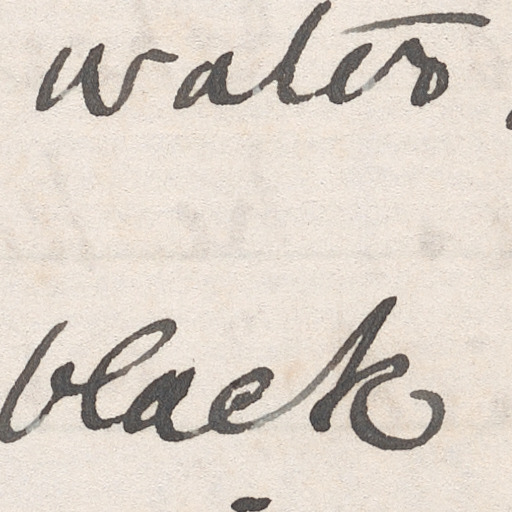 waters
black